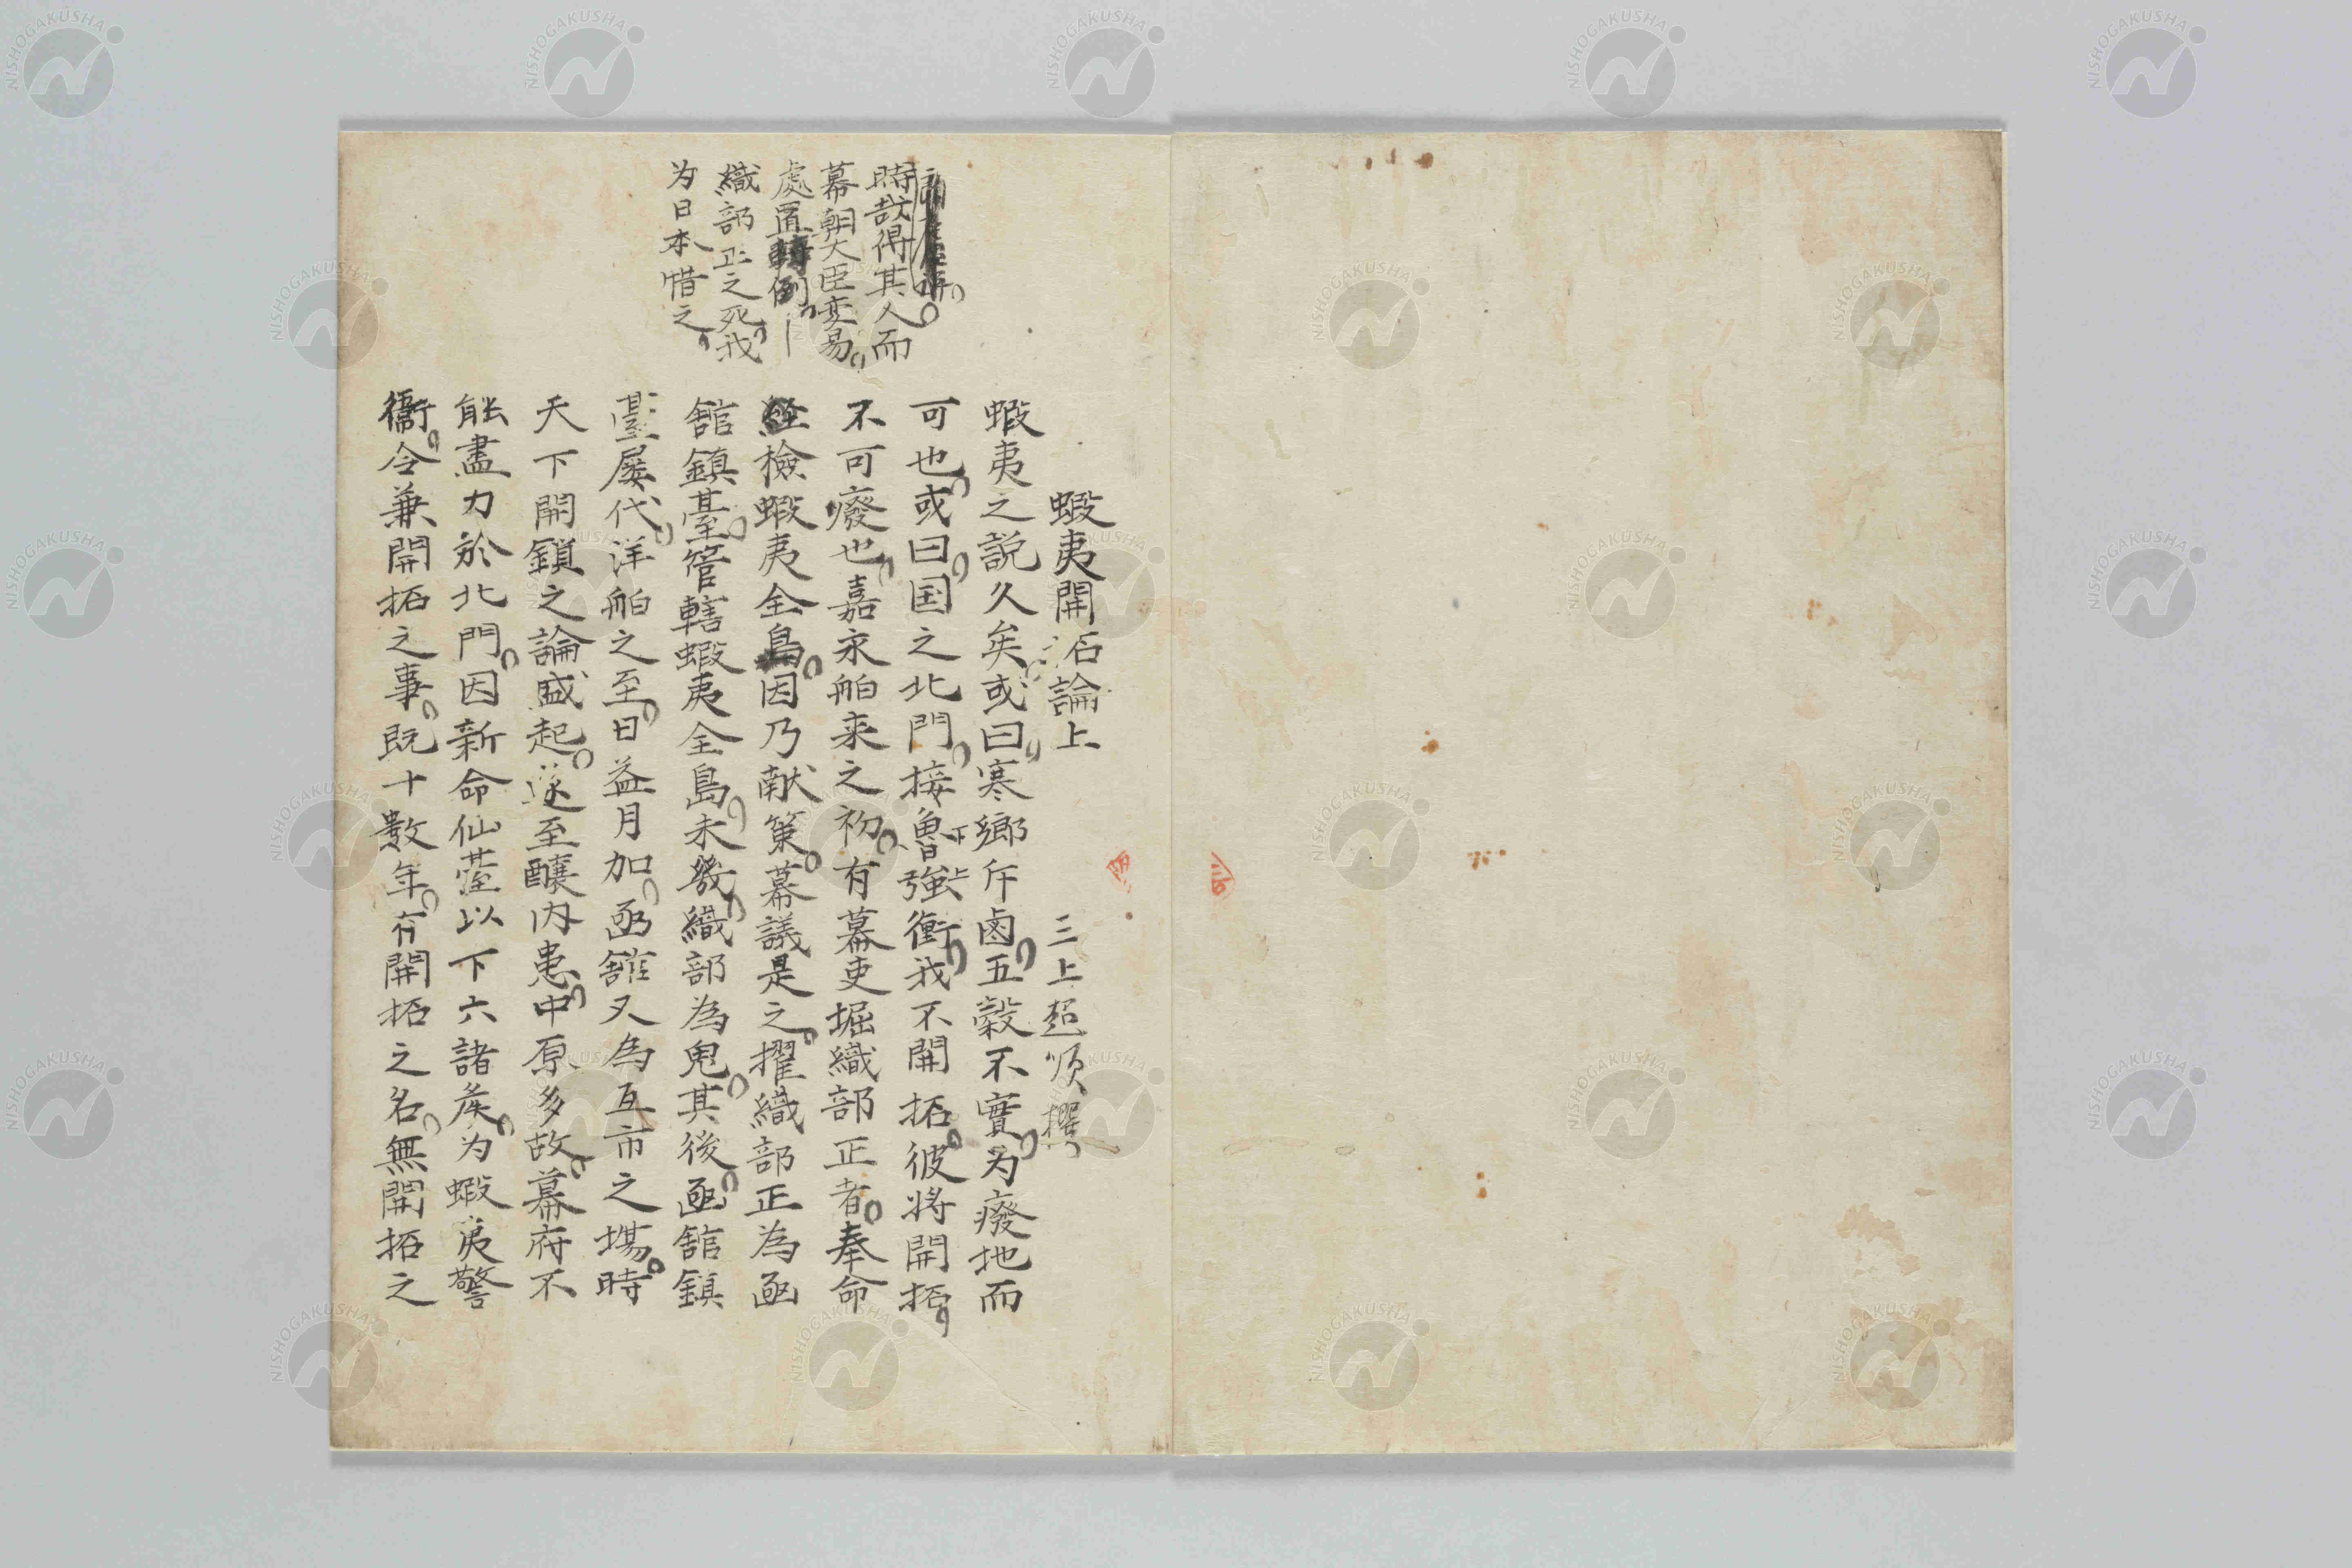 蝦夷開拓論上
三上超順撰
蝦夷之説久矣或曰寒郷斥鹵五穀不實为癈地而
可也或曰国之北門接魯強衝我不開拓彼将開拓
不可癈也嘉永舶来之初有幕吏堀織部正者奉命
経檢蝦夷全島因乃献策幕議是之擢織部正為函
舘鎮臺管轄蝦夷全島未幾織部為鬼其後函舘鎮
臺屡代洋舶之至日益月加函舘又為互市之場時
天下開鎖之論盛起遂至釀内患中原多故幕府不
能盡力於北門因新命仙臺以下六諸矦为蝦夷警
衞令兼開拓之事既十數年有開拓之名無開拓之
時哉得其人而
幕朝大臣変易
處置倒
織部正之死我
为日本惜之
NISHOGAKUSHA